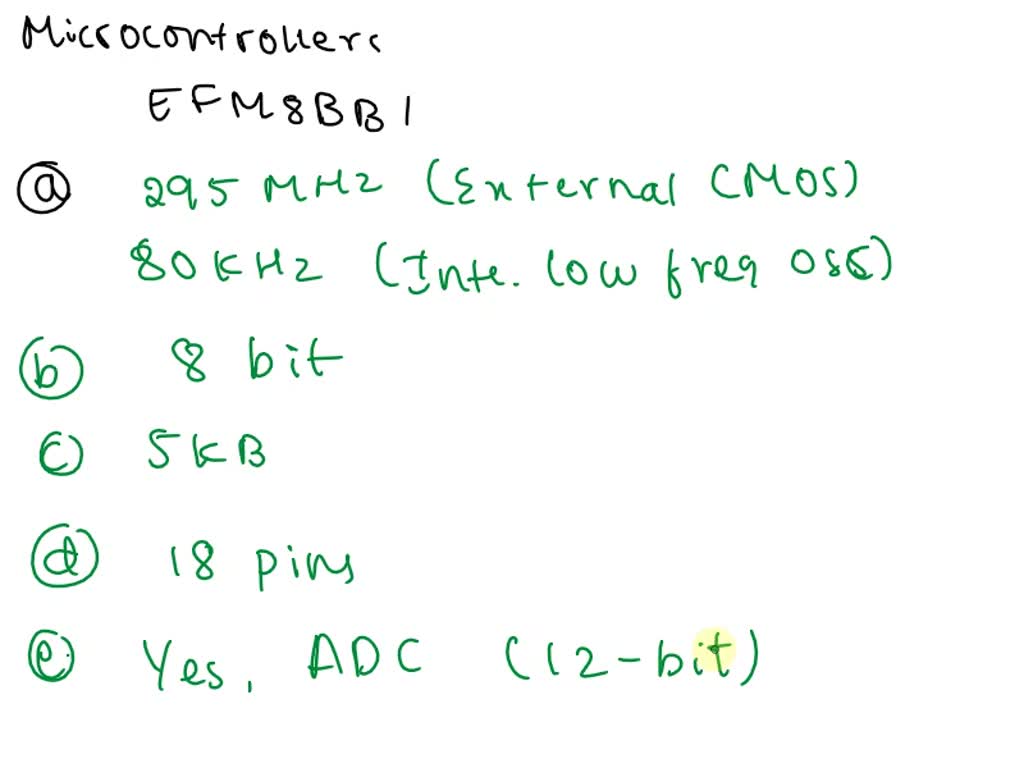 Microcontrollers
EFM8BB1
(a) 295 MHz (External CMOS)
80 KHz (Inte. low freq OSC)
(b) 8 bit
(c) 5KB
(d) 18 pins
(e) Yes, ADC (12-bit)